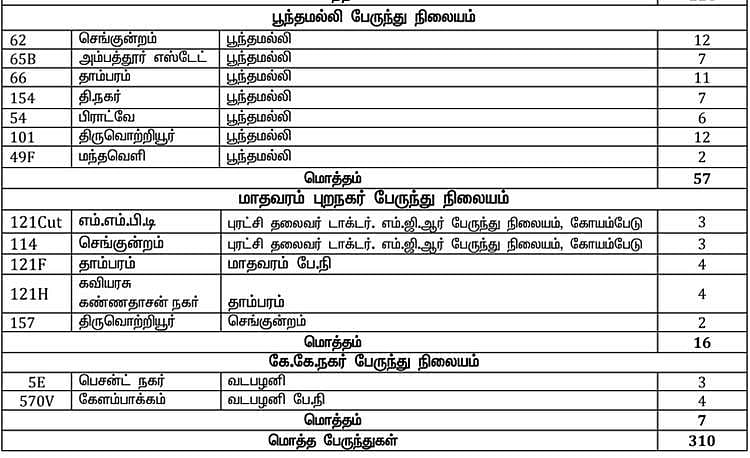 பூந்தமல்லி பேருந்து நிலையம்
62 செங்குன்றம் பூந்தமல்லி 12
65B அம்பத்தூர் எஸ்டேட் பூந்தமல்லி 7
66 தாம்பரம் பூந்தமல்லி 11
154 தி.நகர் பூந்தமல்லி 7
54 பிராட்வே பூந்தமல்லி 6
101 திருவொற்றியூர் பூந்தமல்லி 12
49F மந்தவெளி பூந்தமல்லி 2
மொத்தம் 57
மாதவரம் புறநகர் பேருந்து நிலையம்
121Cut எம்.எம்.பி.டி புரட்சி தலைவர் டாக்டர். எம்.ஜி.ஆர் பேருந்து நிலையம், கோயம்பேடு 3
114 செங்குன்றம் புரட்சி தலைவர் டாக்டர். எம்.ஜி.ஆர் பேருந்து நிலையம், கோயம்பேடு 3
121F தாம்பரம் மாதவரம் பே.நி 4
121H கவியரசு
கண்ணதாசன் நகர் தாம்பரம் 4
157 திருவொற்றியூர் செங்குன்றம் 2
மொத்தம் 16
கே.கே.நகர் பேருந்து நிலையம்
5E பெசன்ட் நகர் வடபழனி 3
570V கேளம்பாக்கம் வடபழனி பே.நி 4
மொத்தம் 7
மொத்த பேருந்துகள் 310